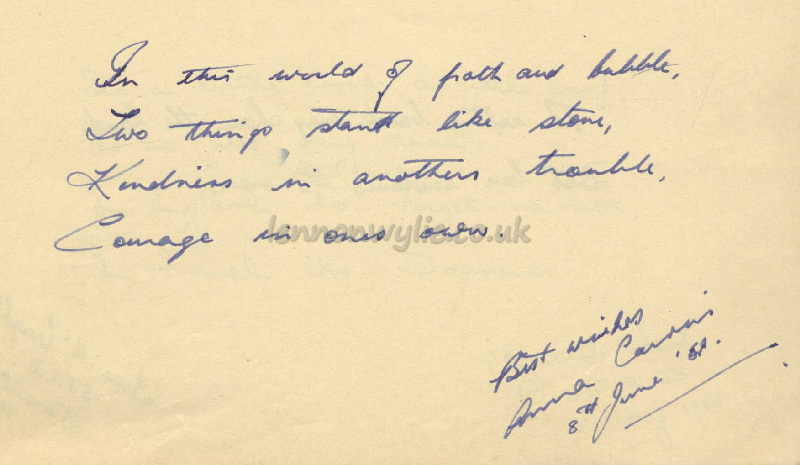 In this world of froth and bubble,
Two things stand like stone,
Kindness in anothers trouble,
Courage in ones own.
lennonwylie.co.uk
Best wishes
Anna
8th June